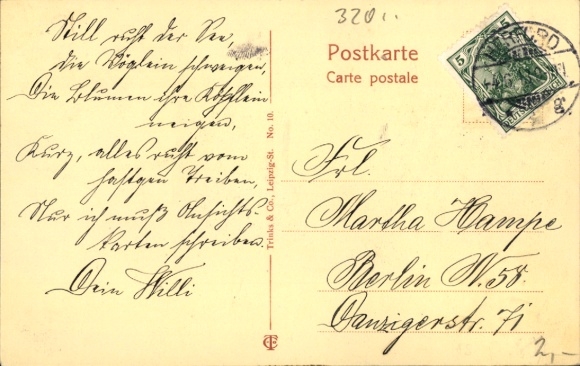 Still ruht der See,
die Vöglein schweigen,
Die Blumen ihre Köpflein
neigen,
Kurz, alles ruht vom
hastgen Treiben,
Nur ich muß Ansichts-
karten schreiben.
Dein Willi
Trinks & Co., Leipzig-St. No. 10.
3201.
Postkarte
Carte postale
5
5
DEUTSCHES REICH
Frl.
Martha Hampe
Berlin N. 58.
Danzigerstr. 71
2,-